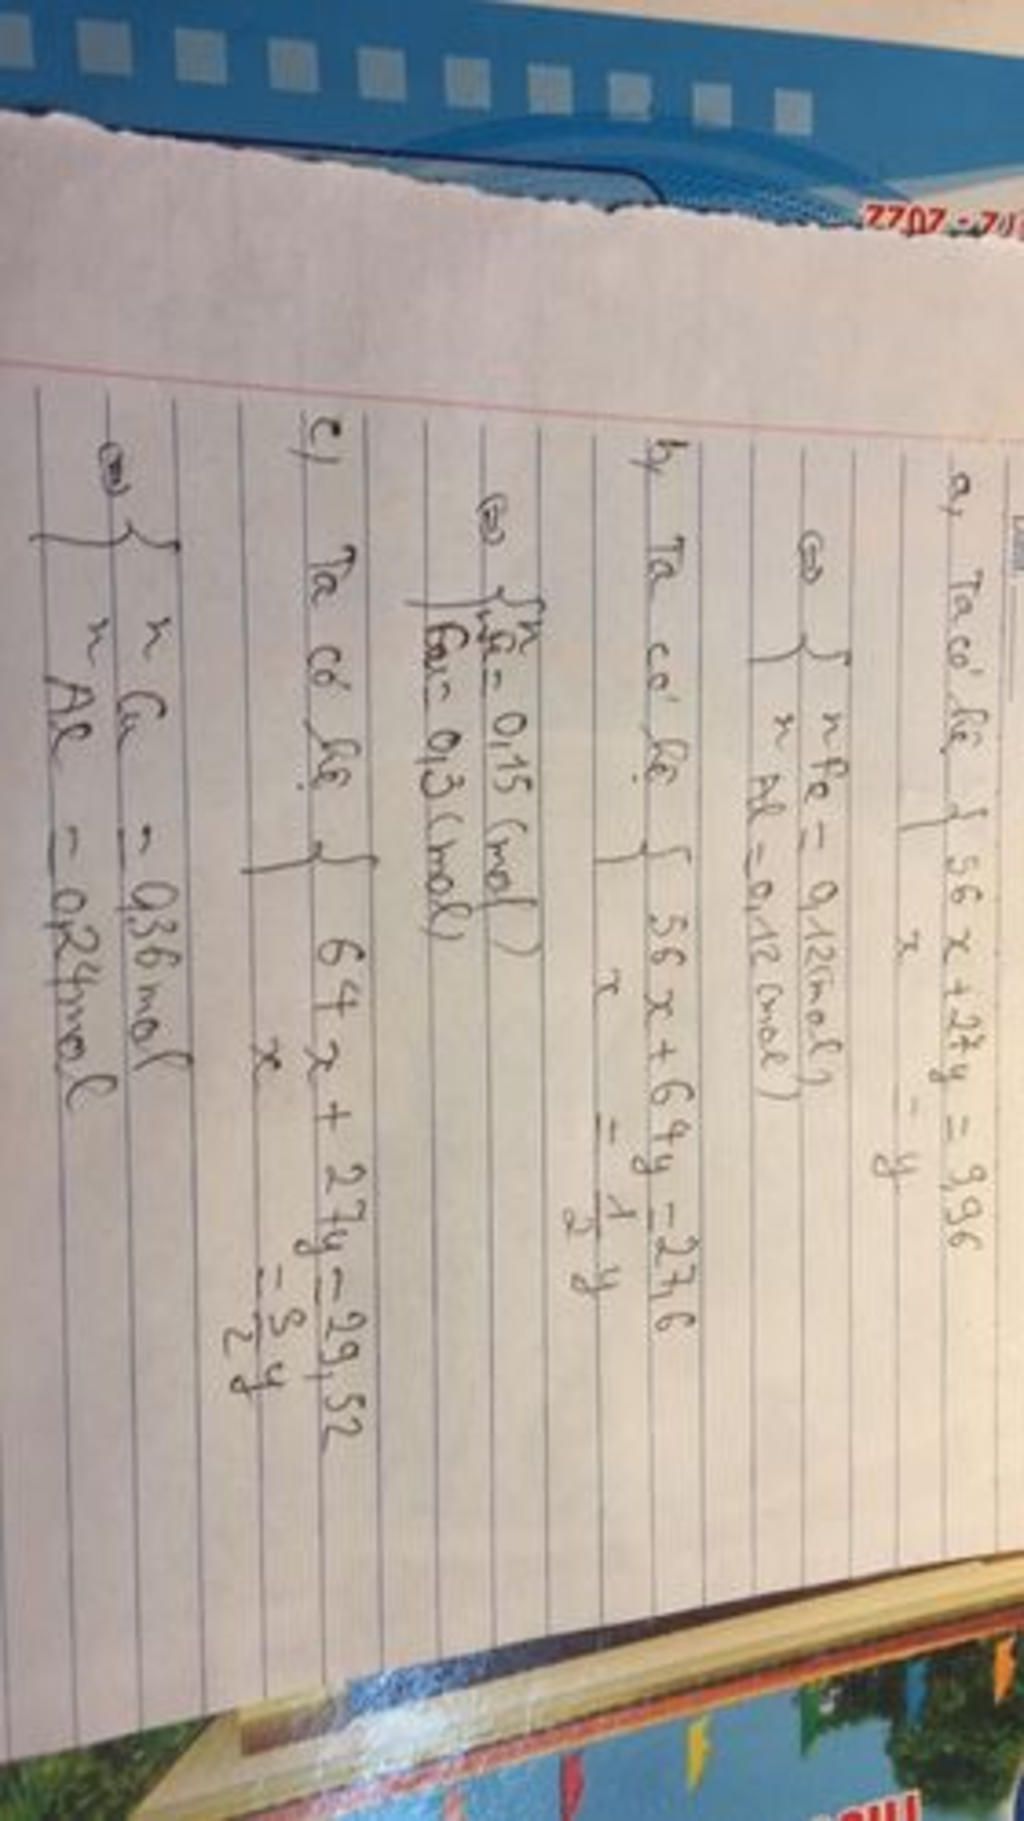 a, Ta có hệ { 56 x + 27y = 9,96
x = y
⇔ { n Fe = 0,12 (mol)
n Al = 0,12 (mol)
b, Ta có hệ { 56 x + 64y = 27,6
x = 1/2 y
⇔ { n Fe = 0,15 (mol)
n Cu = 0,3 (mol)
c, Ta có hệ { 64 x + 27y = 29,52
x = 3/2 y
⇔ { n Cu = 0,36 mol
n Al = 0,24 mol